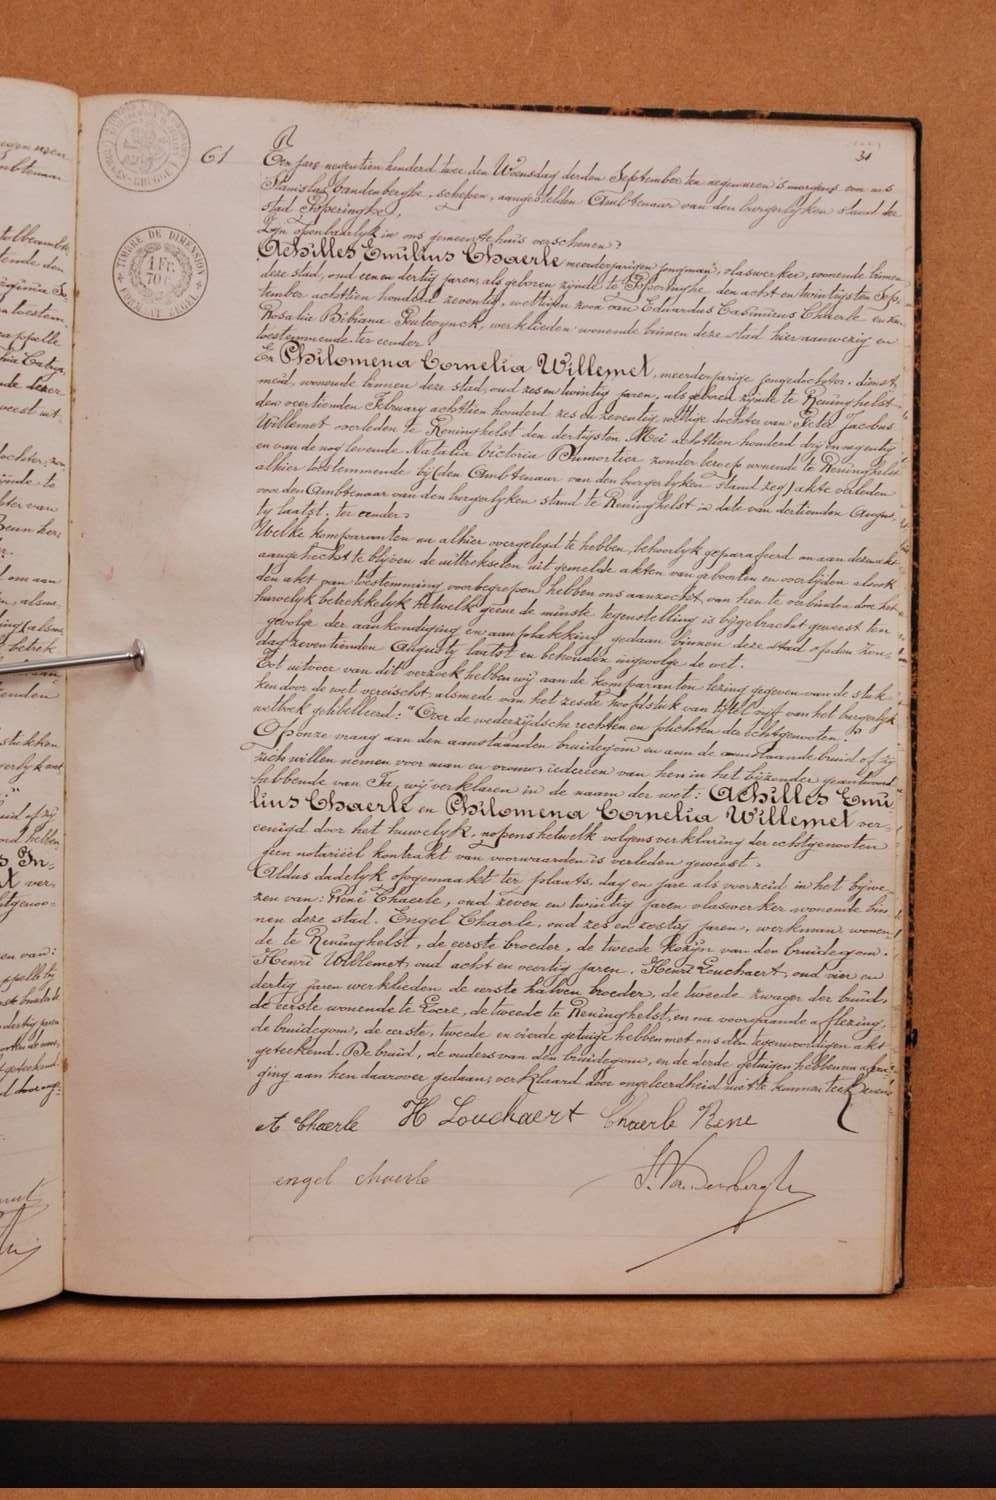 31
61
Ten jare negentien honderd twee den Woensdag derden September ten negen uren 's morgens voor ons
Stanislas Vandenberghe, schepen, aangestelden Ambtenaar van den burgerlyken stand der
stad Poperinghe,
Zyn openbaarlyk in ons gemeentehuis verschenen:
Achilles Emilius Chaerle meerderjarigen jongman, vlaswerker, wonende binnen
deze stad, oud een en dertig jaren, als geboren zynde te Poperinghe den acht en twintigsten Sep-
tember achttien honderd zeventig, wettigen zoon van Eduardus Casimirus Chaerle en van
Rosalia Bibiana werklieden wonende binnen deze stad hier aanwezig en
toestemmende ter eender
En Philomena Cornelia Willemet, meerderjarige jongedochter, dienst-
meid, wonende binnen deze stad, oud zes en twintig jaren, als geboren zynde te Reninghelst
den veertienden February achttien honderd zes en zeventig, wettige dochter van Peter Jacobus
Willemet overleden te Reninghelst den dertigsten Mei achttien honderd dry en negentig
en van de nog levende Natalia Victoria Dumortier zonder beroep wonende te Reninghelst
alhier toestemmende by (den Ambtenaar van den burgerlyken stand zeg) akte verleden
voor den Ambtenaar van den burgerlyken stand te Reninghelst in date van dertienden Augus-
ty laatst, ter eender
Welke komparanten na alhier overgelegd te hebben, behoorlyk geparafeerd om aan dezen akt
aangehecht te blyven de uittrekselen uit gemelde akten van geboorten en overlyden alsook
den akt van toestemming voorbegrepen hebben ons aanzocht, van hen te verbinden door het
huwelyk betrekkelyk hetwelk geene de minste tegenstelling is bygebracht geweest ten
gevolge der aankondiging en aanplakking gedaan binnen deze stad op den Zon-
dag zeventienden Augusty laatst en behouden ingevolge de wet.
Tot uitvoer van dit verzoek hebben wy aan de komparanten lezing gegeven van de stuk-
ken door de wet vereischt, alsmede van het zesde hoofdstuk van tytel vyf van het burgerlyk
wetboek getibelleerd: "Over de wederzydsche rechten en plichten der echtgenooten."
Op onze vraag aan den aanstaanden bruidegom en aan de aanstaande bruid of zy
zich willen nemen voor man en vrouw, iedereen van hen in het byzonder geantwoord
hebbende van Ja, wy verklaren in de naam der wet: Achilles Emi-
lius Chaerle en Philomena Cornelia Willemet ver-
eenigd door het huwelyk, nopens hetwelk volgens verklaring der echtgenooten
geen notarieel kontrakt van voorwaarden is verleden geweest.
Aldus dadelyk opgemaakt ter plaats, dag en jare als voorzeid in het bywe-
zen van: René Chaerle, oud zeven en twintig jaren vlaswerker wonende bin-
nen deze stad. Engel Chaerle, oud zes en zestig jaren, werkman wonen-
de te Reninghelst, de eerste broeder, de tweede kozyn van den bruidegom.
Henri Willemet, oud acht en veertig jaren, Henri Louchaert, oud vier en
dertig jaren werklieden de eerste halven broeder, de tweede zwager der bruid,
de eerste wonende te Locre, de tweede te Reninghelst, en na voorgaande aflezing,
de bruidegom, de eerste, tweede en vierde getuige hebben met ons den tegenwoordigen akt
geteekend. De bruid, de ouders van den bruidegom, en de derde getuigen hebben na
ging aan hen daarover gedaan, verklaard door ongeleerdheid niet te kunnen
A Chaerle H Louchaert Chaerle Rene
engel chaerle
S. Vandenberghe
TIMBRE DE DIMENSION
1 Fr.
70 c
FORMAAT ZEGEL